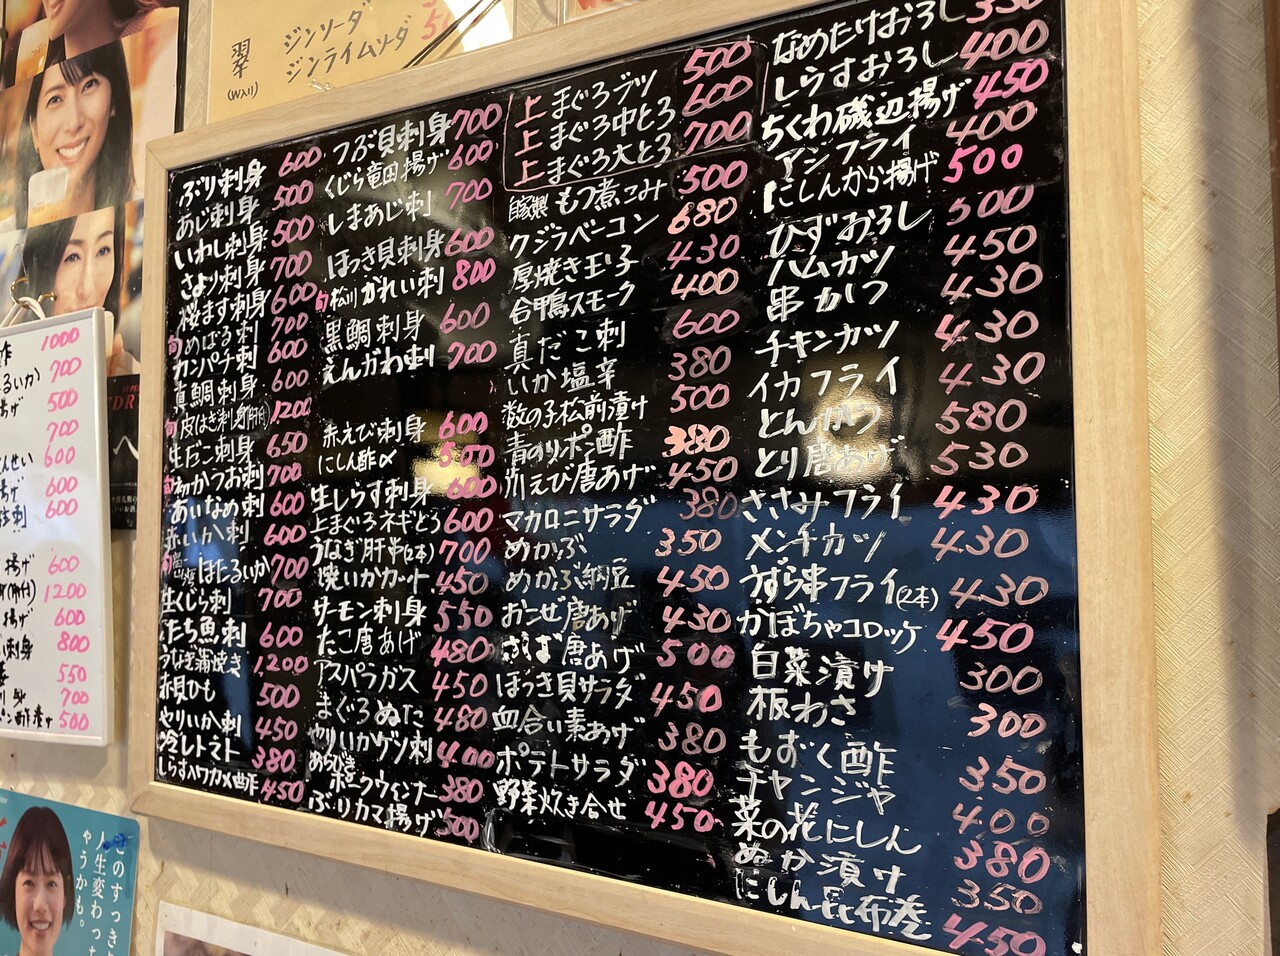 翠
(W入り)
ジンソーダ
ジンライムソーダ 5
ぶり刺身 600
あじ刺身 500
いわし刺身 500
さより刺身 700
桜ます刺身 600
旬めばる刺 700
カンパチ刺 600
真鯛刺身 600
旬皮はぎ刺身(肝付) 1200
生だこ刺身 650
旬初かつお刺 700
あいなめ刺 600
赤いか刺 600
ほたるいか 700
生くじら刺 700
たち魚刺 600
うなぎ蒲焼き 1200
赤貝ひも 500
やりいか刺 450
冷しトマト 380
しらすワカメ酢 450
つぶ貝刺身 700
くじら竜田揚げ 600
しまあじ刺 700
ほっき貝刺身 600
旬松川かれい刺 800
黒鯛刺身 600
えんがわ刺 700
赤えび刺身 600
にしん酢〆 500
生しらす刺身 600
上まぐろネギとろ 600
うなぎ肝串(2本) 700
焼いかカット 450
サーモン刺身 550
たこ唐あげ 480
アスパラガス 450
まぐろぬた 480
やりいかゲソ刺 400
あらびきポークウィンナー 380
ぶりカマ揚げ 500
上まぐろブツ 500
上まぐろ中とろ 600
上まぐろ大とろ 700
自家製もつ煮こみ 500
クジラベーコン 680
厚焼き玉子 430
合鴨スモーク 400
真だこ刺 600
いか塩辛 380
数の子松前漬け 500
青のりポン酢 380
川えび唐あげ 450
マカロニサラダ 380
めかぶ 350
めかぶ納豆 450
おこぜ唐あげ 430
唐あげ 500
ほっき貝サラダ 450
血合い素あげ 380
ポテトサラダ 380
野菜炊き合せ 450
なめたけおろし 350
しらすおろし 400
ちくわ磯辺揚げ 450
アジフライ 400
にしんから揚げ 500
ひずおろし 500
ハムカツ 450
串かつ 430
チキンカツ 430
イカフライ 430
とんかつ 580
とり唐あげ 530
ささみフライ 430
メンチカツ 430
うずら串フライ(2本) 430
かぼちゃコロッケ 450
白菜漬け 300
板わさ 300
もずく酢 350
チャンジャ 400
菜の花にしん 380
ぬか漬け 350
にしん昆布巻 450
酢 1000
るいか) 700
揚げ 500
700
んせい 600
揚げ 600
刺 600
揚げ 600
(肝付) 1200
揚げ 600
刺身 800
550
700
ポン酢漬け 500
このすっき
人生変わった
ゃうかも。